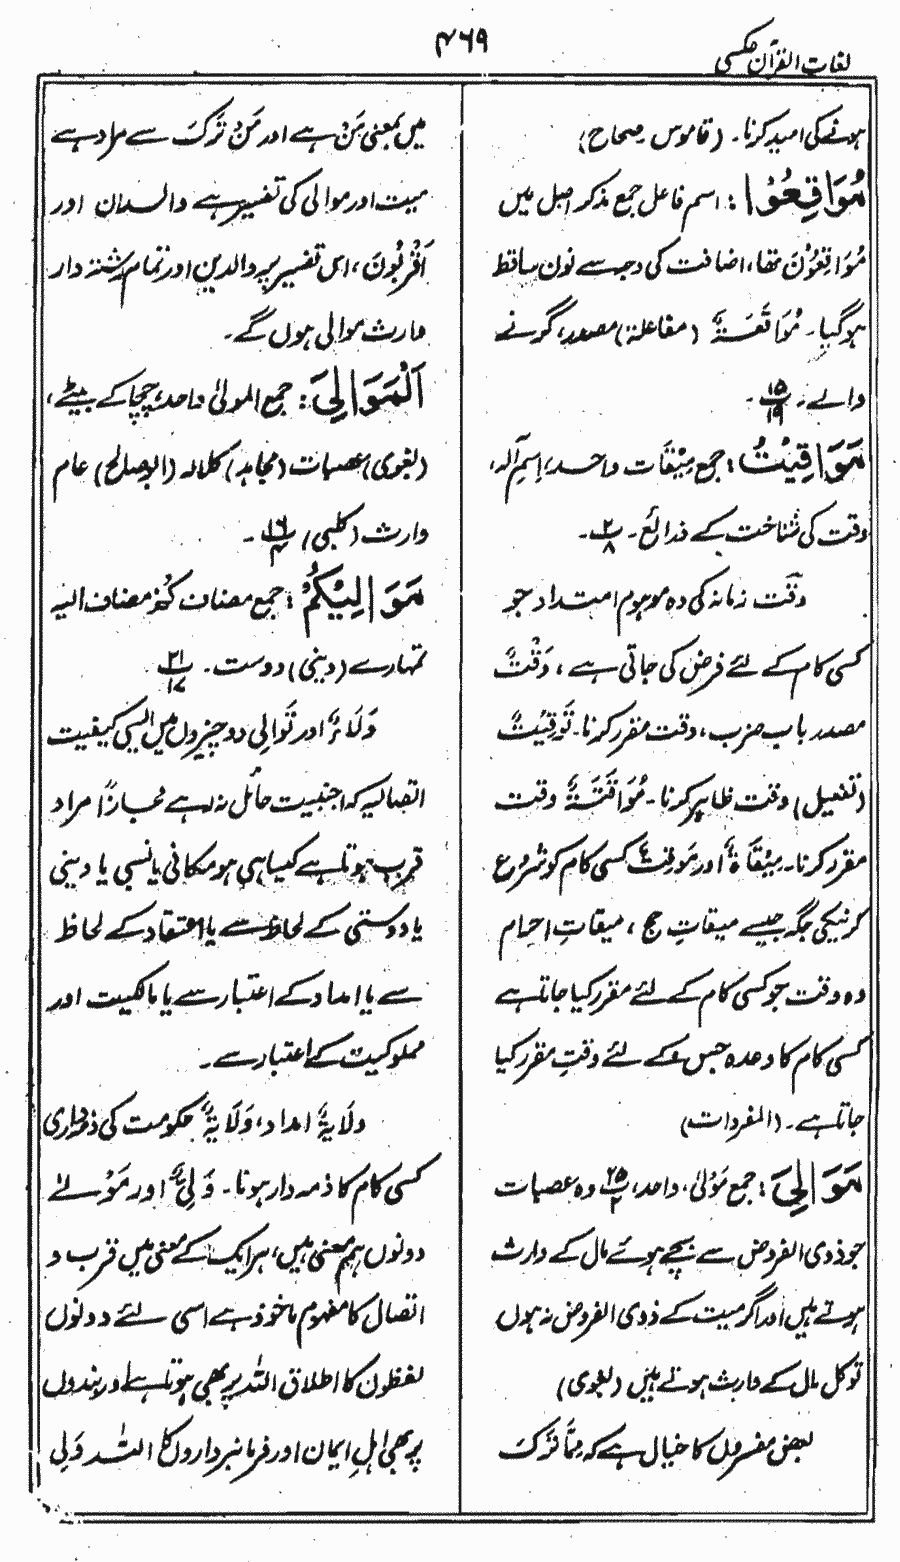 لغات القرآن عکسی
۴۶۹
ہونے کی امید کرنا۔ (قاموس۔ صحاح)
مُوَاقِعُوْا: اسم فاعل جمع مذکر اصل میں
مُوَاقِعُوْنَ تھا، اضافت کی وجہ سے نون ساقط
ہوگیا۔ مُوَاقَعَۃٌ (مفاعلۃ) مصدر، گرنے
والے۔ ۱۵/۱۹۔
مَوَاقِیْتُ: جمع مِیْقَات واحد، اِسمِ آلہ،
وقت کی شناخت کے ذرائع۔ ۲/۸۔
وقت زمانہ کی وہ موہوم امتداد جو
کسی کام کے لئے فرض کی جاتی ہے، وَقْتٌ
مصدر باب ضرب، وقت مقرر کرنا۔ تَوْقِیْتٌ
(تفعیل) وقت ظاہر کرنا۔ مُوَاقَتَۃٌ وقت
مقرر کرنا۔ مِیْقَاۃٌ اور مَوْقِتٌ کسی کام کو شروع
کرنیکی جگہ جیسے میقاتِ حج، میقاتِ احرام
وہ وقت جو کسی کام کے لئے مقرر کیا جاتا ہے
کسی کام کا وعدہ جس کے لئے وقتِ مقرر کیا
جاتا ہے۔ (المفردات)
مَوَالِیَ: جمع مَوْلیٰ، واحد، ۲۵/۲ وہ عصبات
جو ذوی الفروض سے بچے ہوئے مال کے وارث
ہوتے ہیں اور اگر میت کے ذوی الفروض نہ ہوں
تو کل مال کے وارث ہوتے ہیں (بغوی)
بعض مفسروں کا خیال ہے کہ مِمَّا تَرَکَ
میں بمعنی مَنْ ہے اور مَنْ تَرَکَ سے مراد ہے
میت اور موالی کی تفسیر ہے والسدان اور
اَقْرَبُوْنَ، اس تفسیر پر والدین اور تمام رشتہ دار
وارث موالی ہوں گے۔
اَلْمَوَالِیَ: جمع المولیٰ واحد، چچا کے بیٹے،
(بغوی) عصبات (مجاہد) کلالہ (ابو صالح) عام
وارث (کلبی) ۱۶/۴۔
مَوَالِیْکُمْ: جمع مضاف کُمْ مضاف الیہ
تمہارے (دینی) دوست۔ ۲۱/۱۷
وَلَاءٌ اور تَوَالِی دو چیزوں میں ایسی کیفیت
اتصالیہ کہ اجنبیت حائل نہ رہے مجازًا مراد
قرب ہوتا ہے کیسا ہی ہو مکانی یا نسبی یا دینی
یا دوستی کے لحاظ سے یا اعتقاد کے لحاظ
سے یا امداد کے اعتبار سے یا مالکیت اور
مملوکیت کے اعتبار سے۔
وِلَایَۃٌ امداد، وَلَایَۃٌ حکومت کی ذمہ داری
کسی کام کا ذمہ دار ہونا۔ وَلِیٌّ اور مَوْلےٰ
دونوں ہم معنی ہیں، ہر ایک کے معنی میں قرب و
اتصال کا مفہوم ماخوذ ہے اسی لئے دونوں
لفظوں کا اطلاق اللہ پر بھی ہوتا ہے اور بندوں
پر بھی اہلِ ایمان اور فرمانبرداروں کا اللہ وَلی